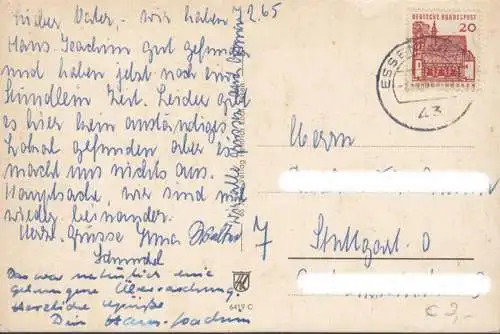 7.2.65
Lieber Vater, - wir haben
Hans Joachim gut gefunden
und haben jetzt noch ein
Stündlein Zeit. Leider
es hier kein anständiges
Lokal gefunden aber es
macht uns nichts aus.
Hauptsache, wir sind mal
wieder beieinander.
Herzl. Grüsse Irma
Das war natürlich eine
gelungene Überraschung.
Herzliche Grüße
Dein Hans-Joachim
DEUTSCHE BUNDESPOST
20
ESSEN
43
Herrn
7 Stuttgart O
6419 C
€ 3,-